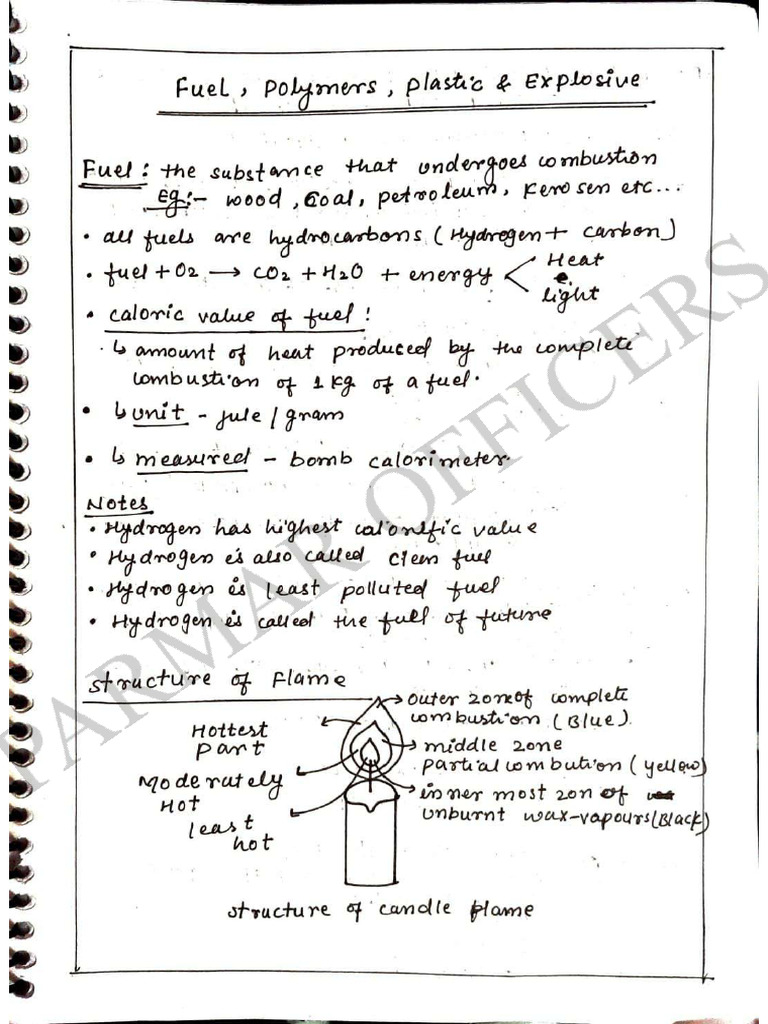 Fuel, Polymers, Plastic & Explosive
Fuel: the substance that undergoes combustion
Eg:- wood, Coal, petroleum, Kerosen etc...
• all fuels are hydrocarbons (Hydrogen + carbon)
• fuel + O2 → CO2 + H2O + energy < Heat
light
• caloric value of fuel:
↳ amount of heat produced by the complete
combustion of 1 kg of a fuel.
• ↳ unit - jule / gram
• ↳ measured - bomb calorimeter.
Notes
• Hydrogen has highest calorific value
• Hydrogen is also called clen fuel
• Hydrogen is least polluted fuel
• Hydrogen is called the full of future
Structure of Flame
outer zone of complete
combustion (Blue).
Hottest
part
middle zone
partial combution (yellow)
Moderately
Hot
inner most zon of
unburnt wax-vapours (Black)
least
hot
structure of candle flame
PARMAR OFFICERS